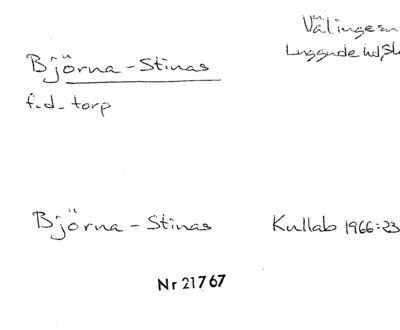 Välinge sn
Luggude hd Sk
Björna-Stinas
f.d. torp
Björna-Stinas Kullab 1966:23
Nr 21767